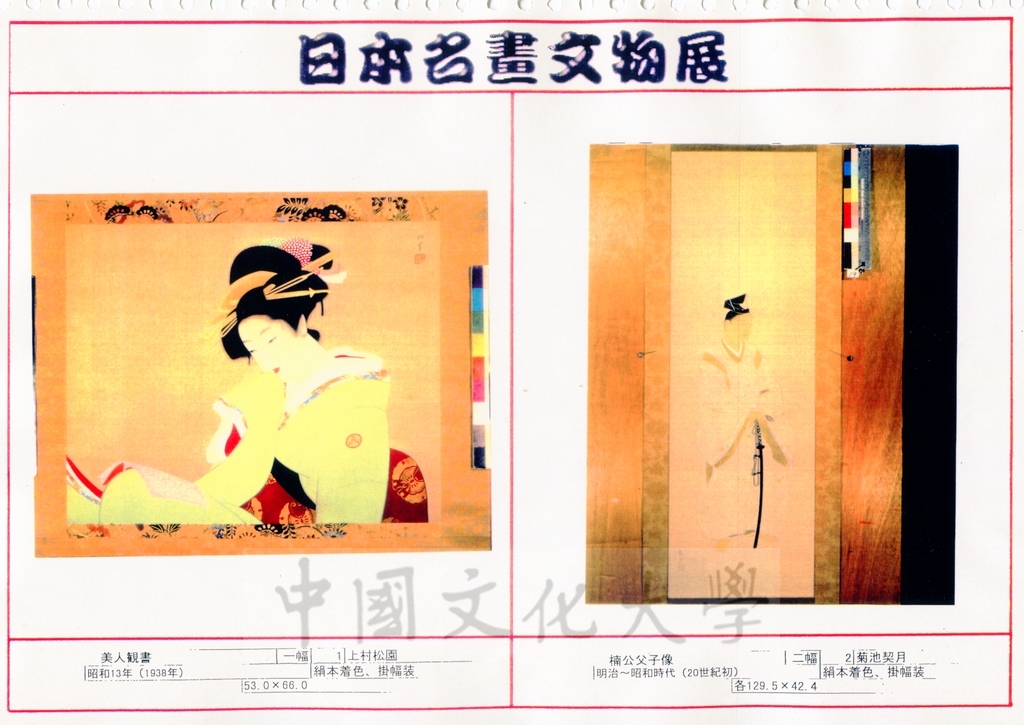 日本名畫文物展
中國文化大學
美人観書 一幅 1 上村松園
昭和13年（1938年） 絹本着色、掛幅装
53.0×66.0
楠公父子像 二幅 2 菊池契月
明治～昭和時代（20世紀初） 絹本着色、掛幅装
各129.5×42.4